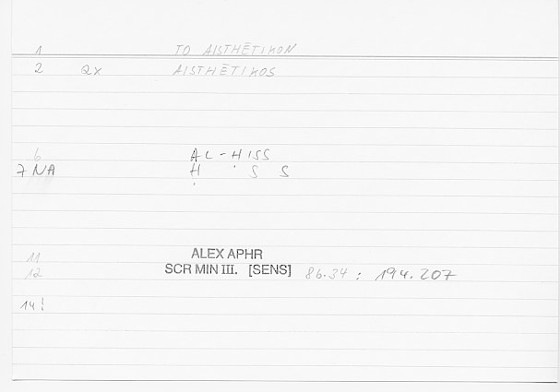 1 TO AISTHĒTIKON
2 QX AISTHĒTIKOS
6 AL-HISS
7 NA H S S
11 ALEX APHR
12 SCR MIN III. [SENS] 86.34 : 194.207
14!